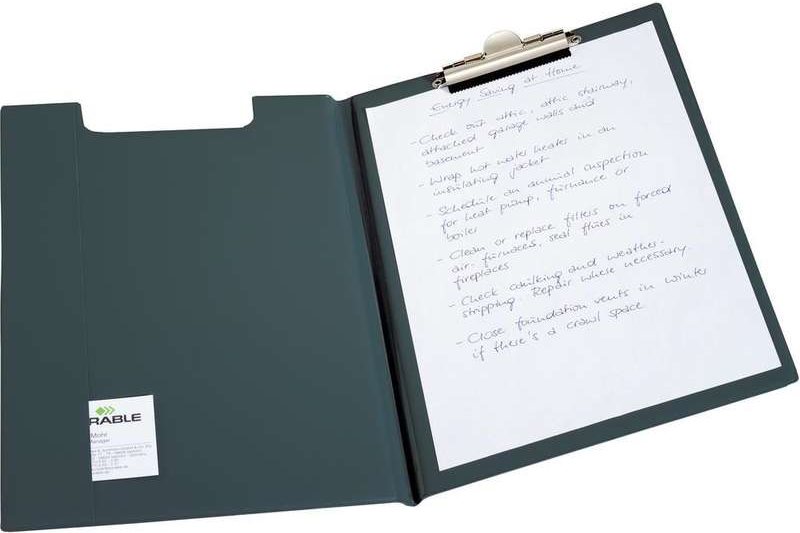 Energy Saving at Home
- Check out attic, attic stairway,
attached garage walls and
basement
- Wrap hot water heater in an
insulating jacket
- Schedule an annual inspection
for heat pump, furnance or
boiler
- Clean or replace filters on forced
air-furnaces, seal flues in
fireplaces
- Check caulking and weather-
stripping. Repair where necessary.
- Close foundation vents in winter
if there's a crawl space
RABLE
Mohr